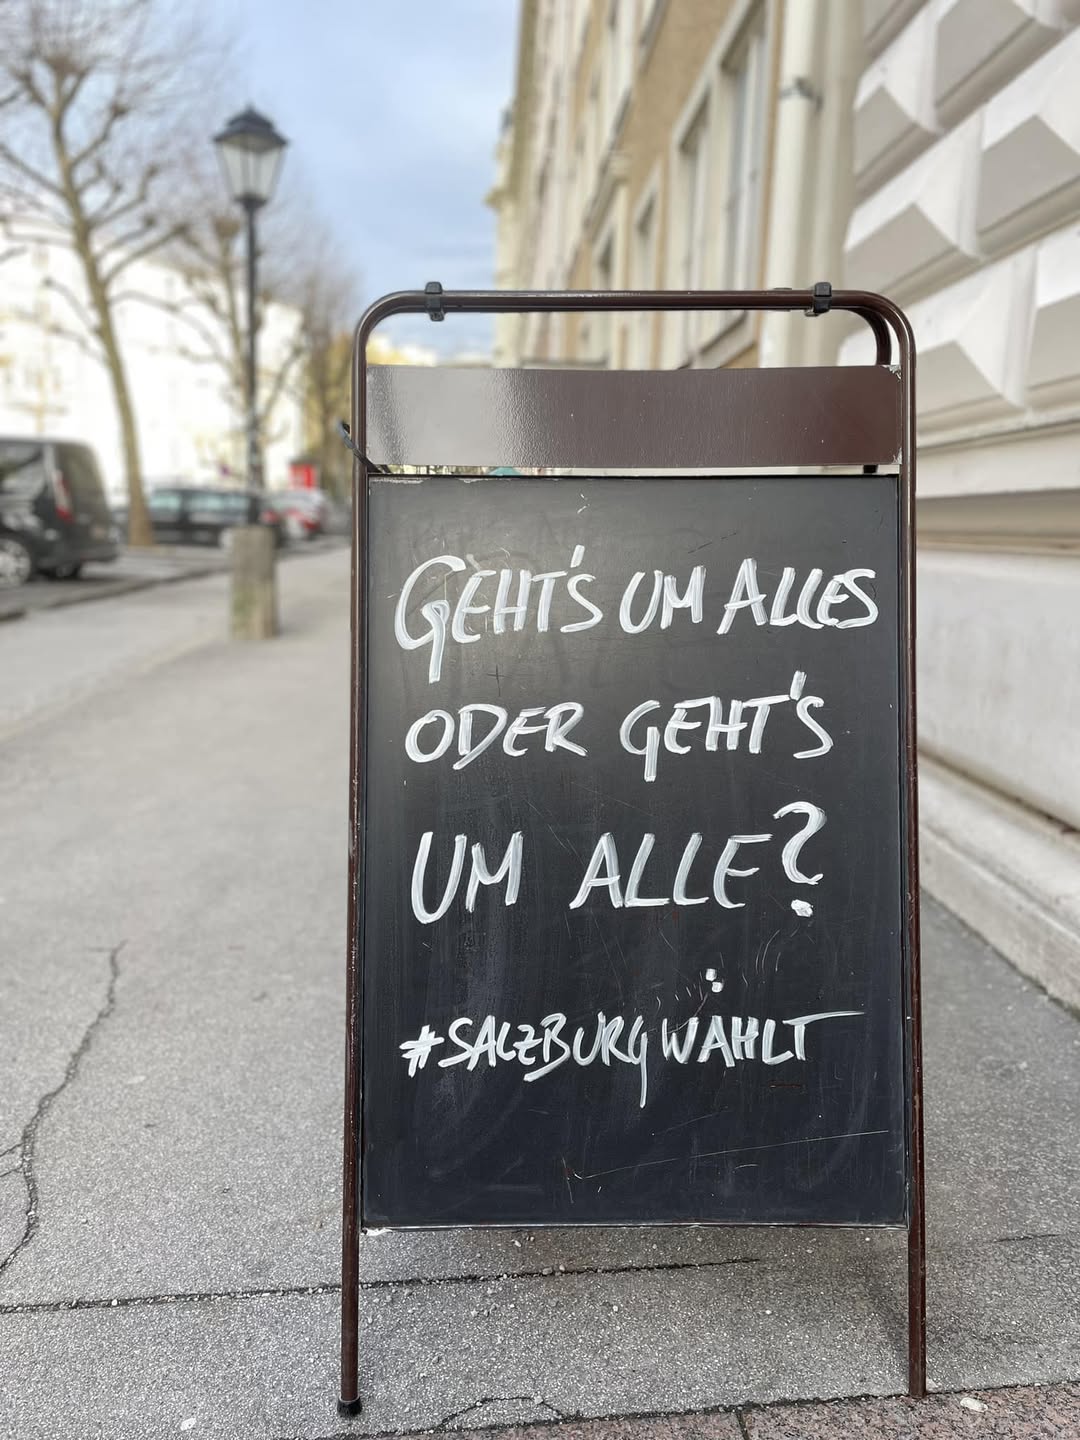 GEHT'S UM ALLES
ODER GEHT'S
UM ALLE?
#SALZBURGWÄHLT